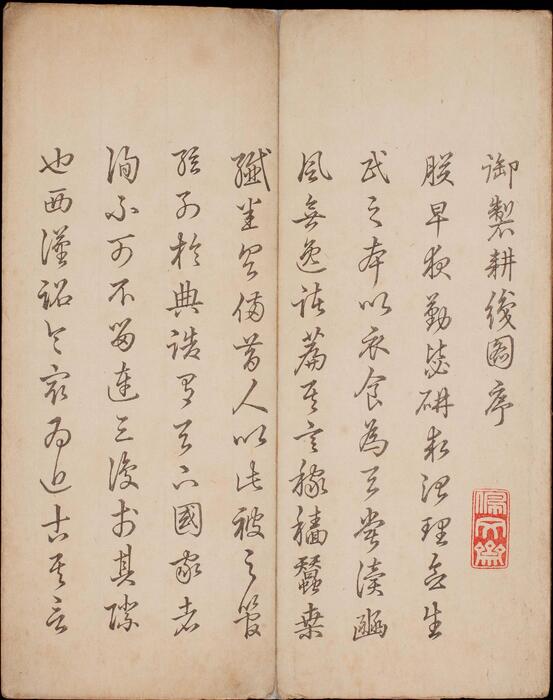 御製耕織圖序
佩文齋
朕早夜勤毖研求治理念生
民之本以衣食為天嘗讀豳
風無逸諸篇其言稼穡蠶桑
纖悉具備昔人以此被之管
絃列於典誥有天下國家者
洵不可不留連三復於其際
也西漢詔令最為近古其言